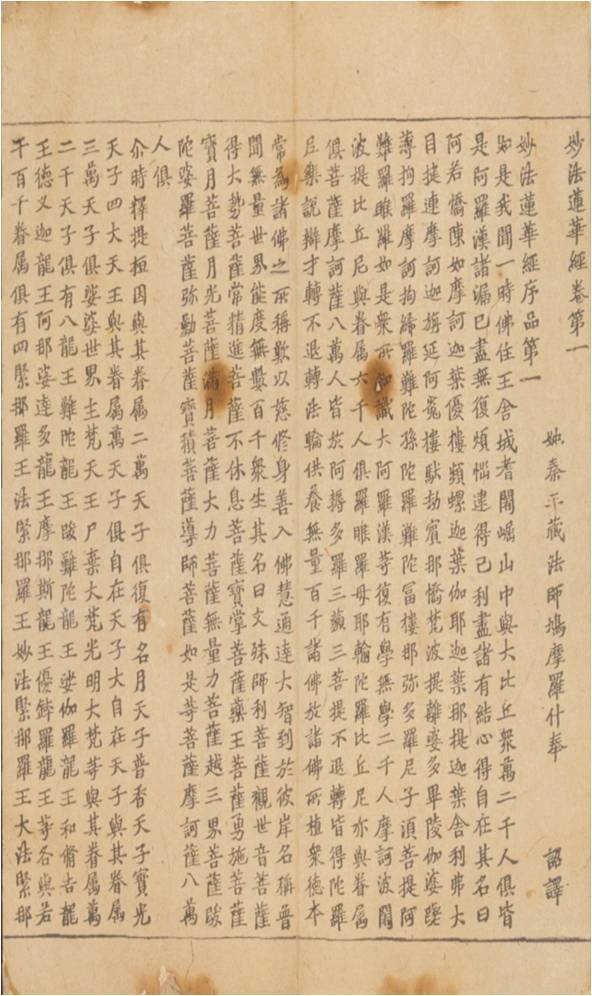 妙法蓮華經卷第一
姚秦三藏法師鳩摩羅什奉 詔譯
妙法蓮華經序品第一
如是我聞一時佛住王舍城耆闍崛山中與大比丘眾萬二千人俱皆
是阿羅漢諸漏已盡無復煩惱逮得己利盡諸有結心得自在其名曰
阿若憍陳如摩訶迦葉優樓頻螺迦葉伽耶迦葉那提迦葉舍利弗大
目揵連摩訶迦旃延阿㝹樓馱劫賓那憍梵波提離婆多畢陵伽婆蹉
薄拘羅摩訶拘絺羅難陀孫陀羅難陀冨樓那弥多羅尼子湏菩提阿
難羅睺羅如是衆所知識大阿羅漢等復有學無學二千人摩訶波闍
波提比丘尼與眷屬六千人俱羅睺羅母耶輸陀羅比丘尼亦與眷屬
俱菩薩摩訶薩八萬人皆於阿耨多羅三藐三菩提不退轉皆得陀羅
尼樂說辯才轉不退轉法輪供養無量百千諸佛於諸佛所植衆德本
常為諸佛之所稱歎以慈修身善入佛慧通達大智到於彼岸名稱普
聞無量世界能度無數百千衆生其名曰文殊師利菩薩觀世音菩薩
得大勢菩薩常精進菩薩不休息菩薩寶掌菩薩藥王菩薩勇施菩薩
寶月菩薩月光菩薩滿月菩薩大力菩薩無量力菩薩越三界菩薩颰
陀婆羅菩薩弥勒菩薩寶積菩薩導師菩薩如是等菩薩摩訶薩八萬
人俱
尒時釋提桓因與其眷屬二萬天子俱復有名月天子普香天子寶光
天子四大天王與其眷屬萬天子俱自在天子大自在天子與其眷屬
三萬天子俱娑婆世界主梵天王尸棄大梵光明大梵等與其眷屬萬
二千天子俱有八龍王難陀龍王跋難陀龍王娑伽羅龍王和脩吉龍
王德叉迦龍王阿那婆達多龍王摩那斯龍王優鉢羅龍王等各與若
干百千眷屬俱有四緊那羅王法緊那羅王妙法緊那羅王大法緊那